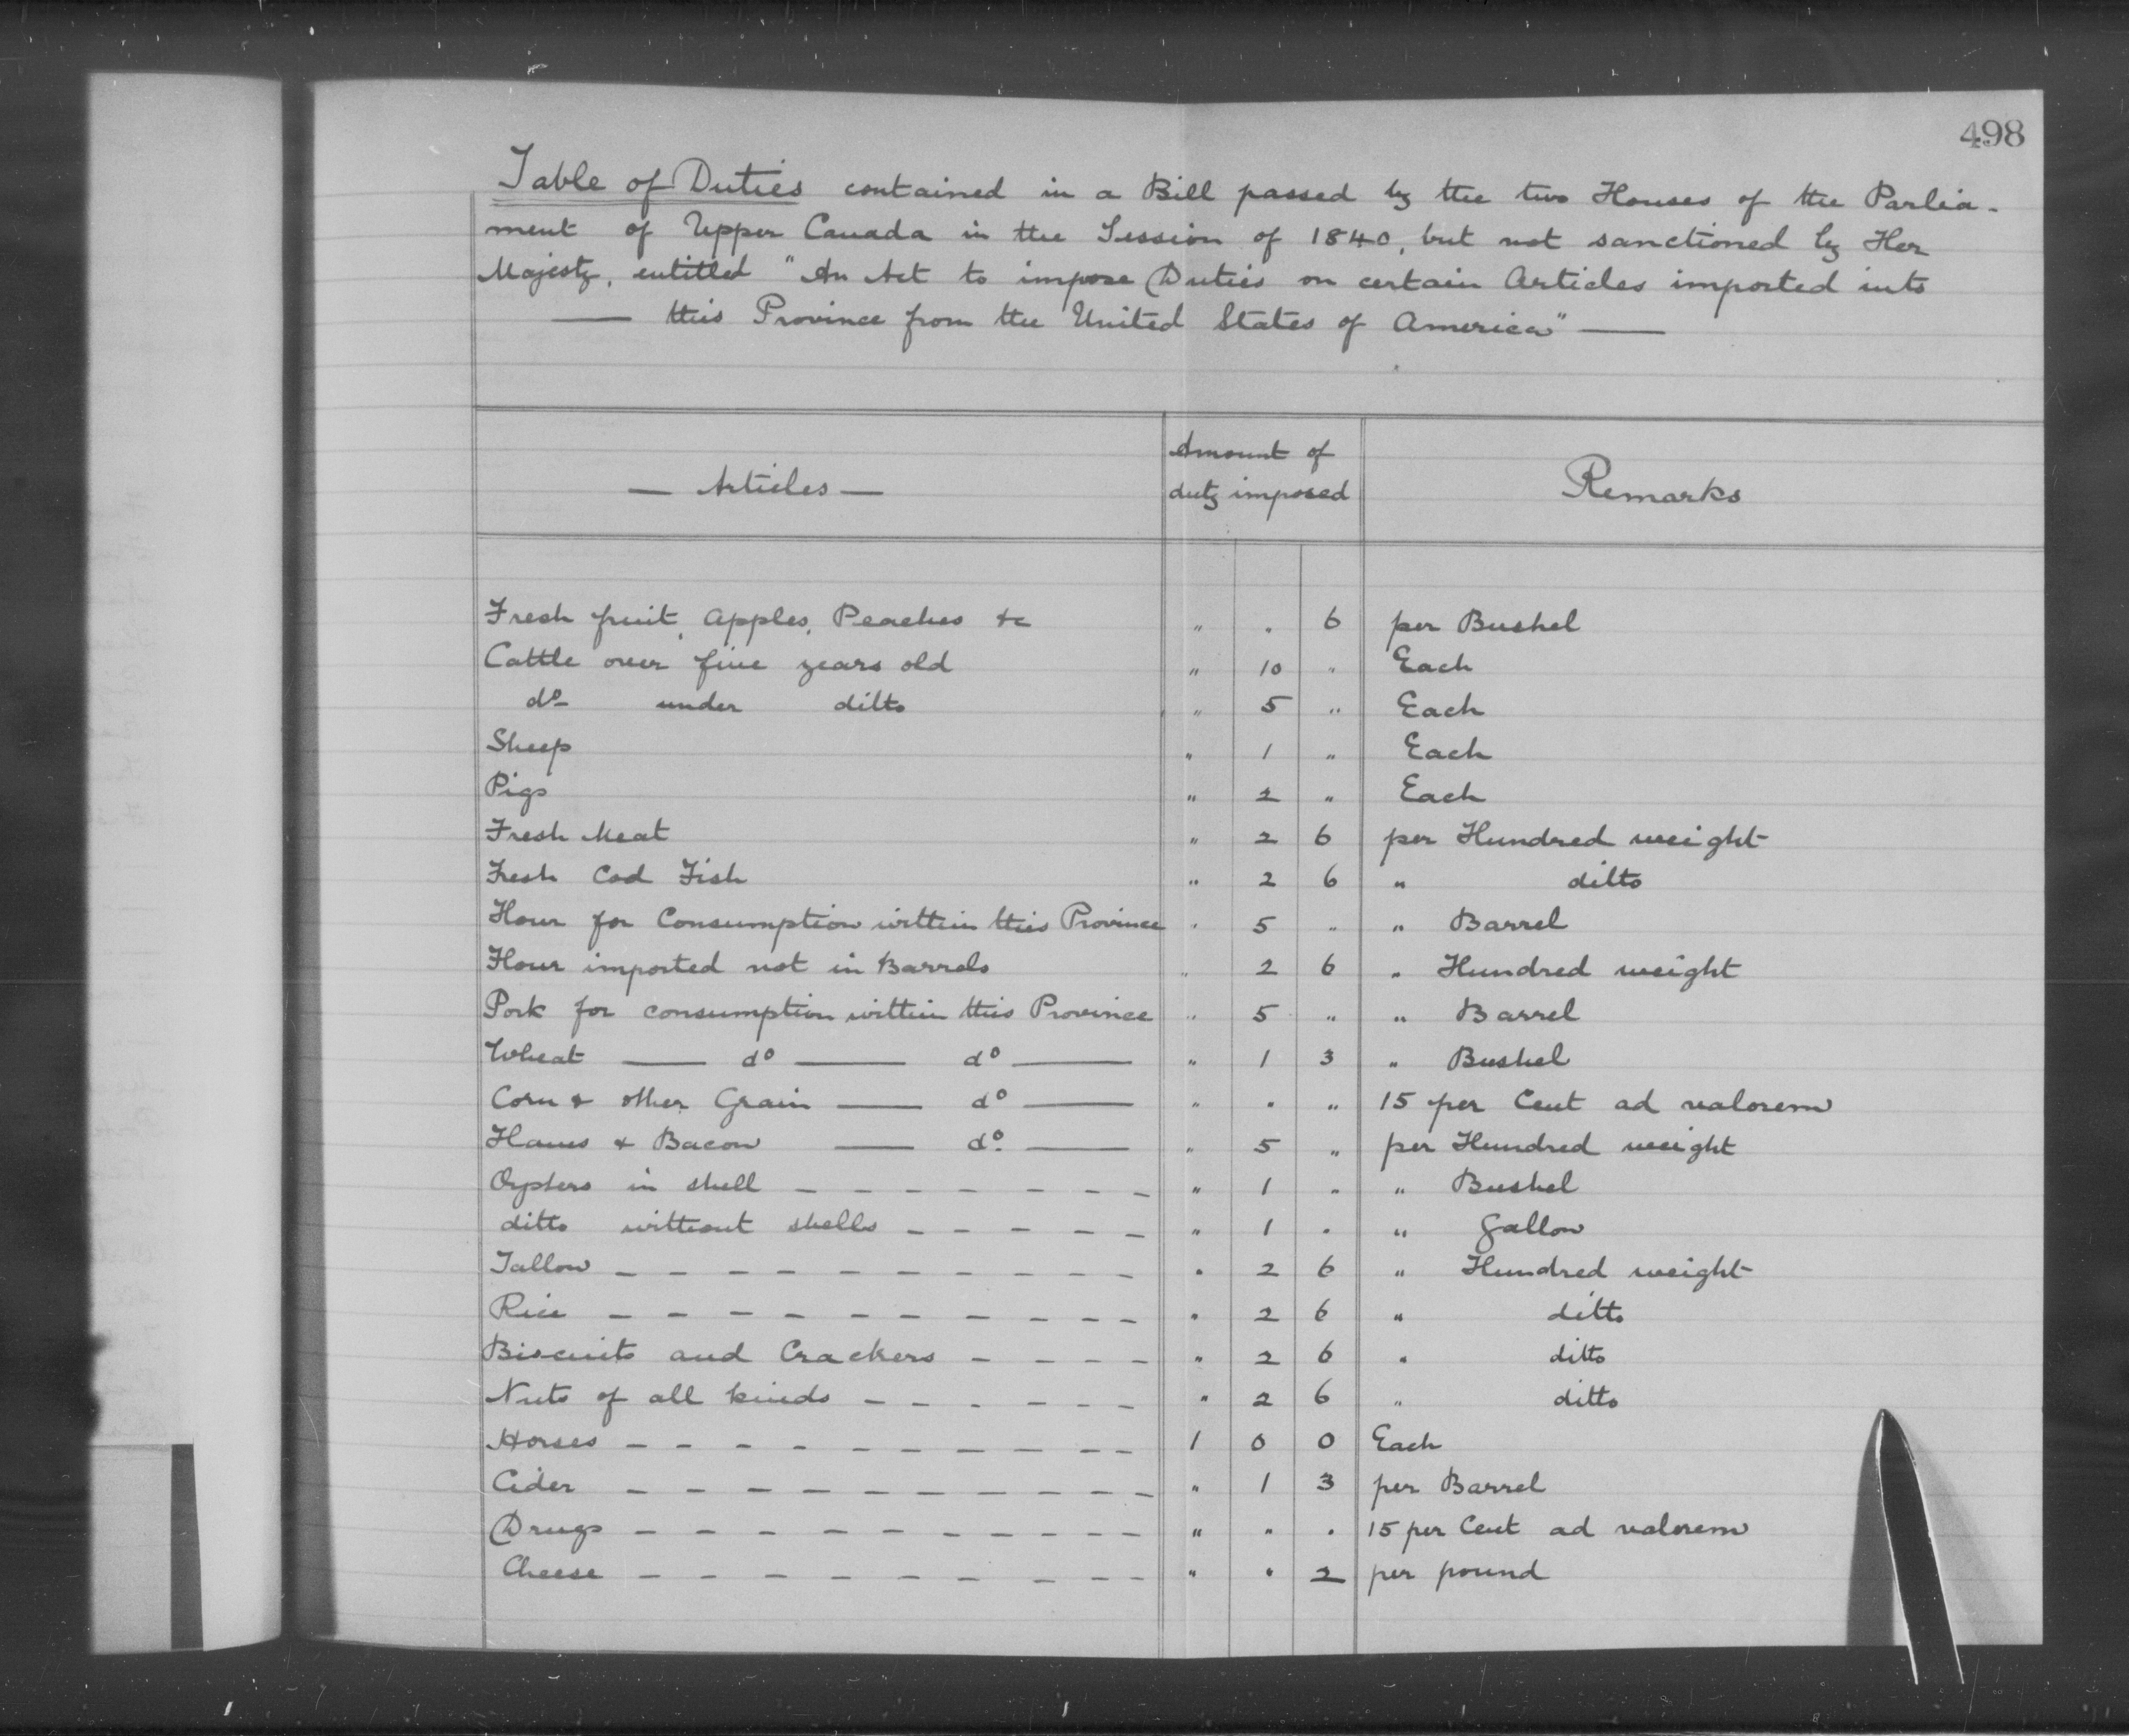 498
Table of Duties contained in a Bill passed by the two Houses of the Parlia-
ment of Upper Canada in the Session of 1840, but not sanctioned by Her
Majesty, entitled "An Act to impose Duties on certain Articles imported into
— this Province from the United States of America" —
— Articles — Amount of duty imposed Remarks
Fresh fruit, Apples, Peaches &c " . 6 per Bushel
Cattle over five years old " 10 " Each
do under ditto " 5 " Each
Sheep " 1 " Each
Pigs " 2 " Each
Fresh Meat " 2 6 per Hundred weight
Fresh Cod Fish " 2 6 " ditto
Flour for Consumption within this Province " 5 " " Barrel
Flour imported not in Barrels " 2 6 " Hundred weight
Pork for consumption within this Province " 5 " " Barrel
Wheat — do — do — " 1 3 " Bushel
Corn & other Grain — do — " " " 15 per Cent ad valorem
Hams & Bacon — do. — " 5 " per Hundred weight
Oysters in shell - - - - - - - " 1 " " Bushel
ditto without shells - - - - - " 1 " " Gallon
Tallow - - - - - - - - - - " 2 6 " Hundred weight
Rice - - - - - - - - - - " 2 6 " ditto
Biscuits and Crackers - - - - " 2 6 " ditto
Nuts of all kinds - - - - - - " 2 6 " ditto
Horses - - - - - - - - - - 1 0 0 Each
Cider - - - - - - - - - - " 1 3 per Barrel
Drugs - - - - - - - - - - " " " 15 per Cent ad valorem
Cheese - - - - - - - - - - " " 2 per pound